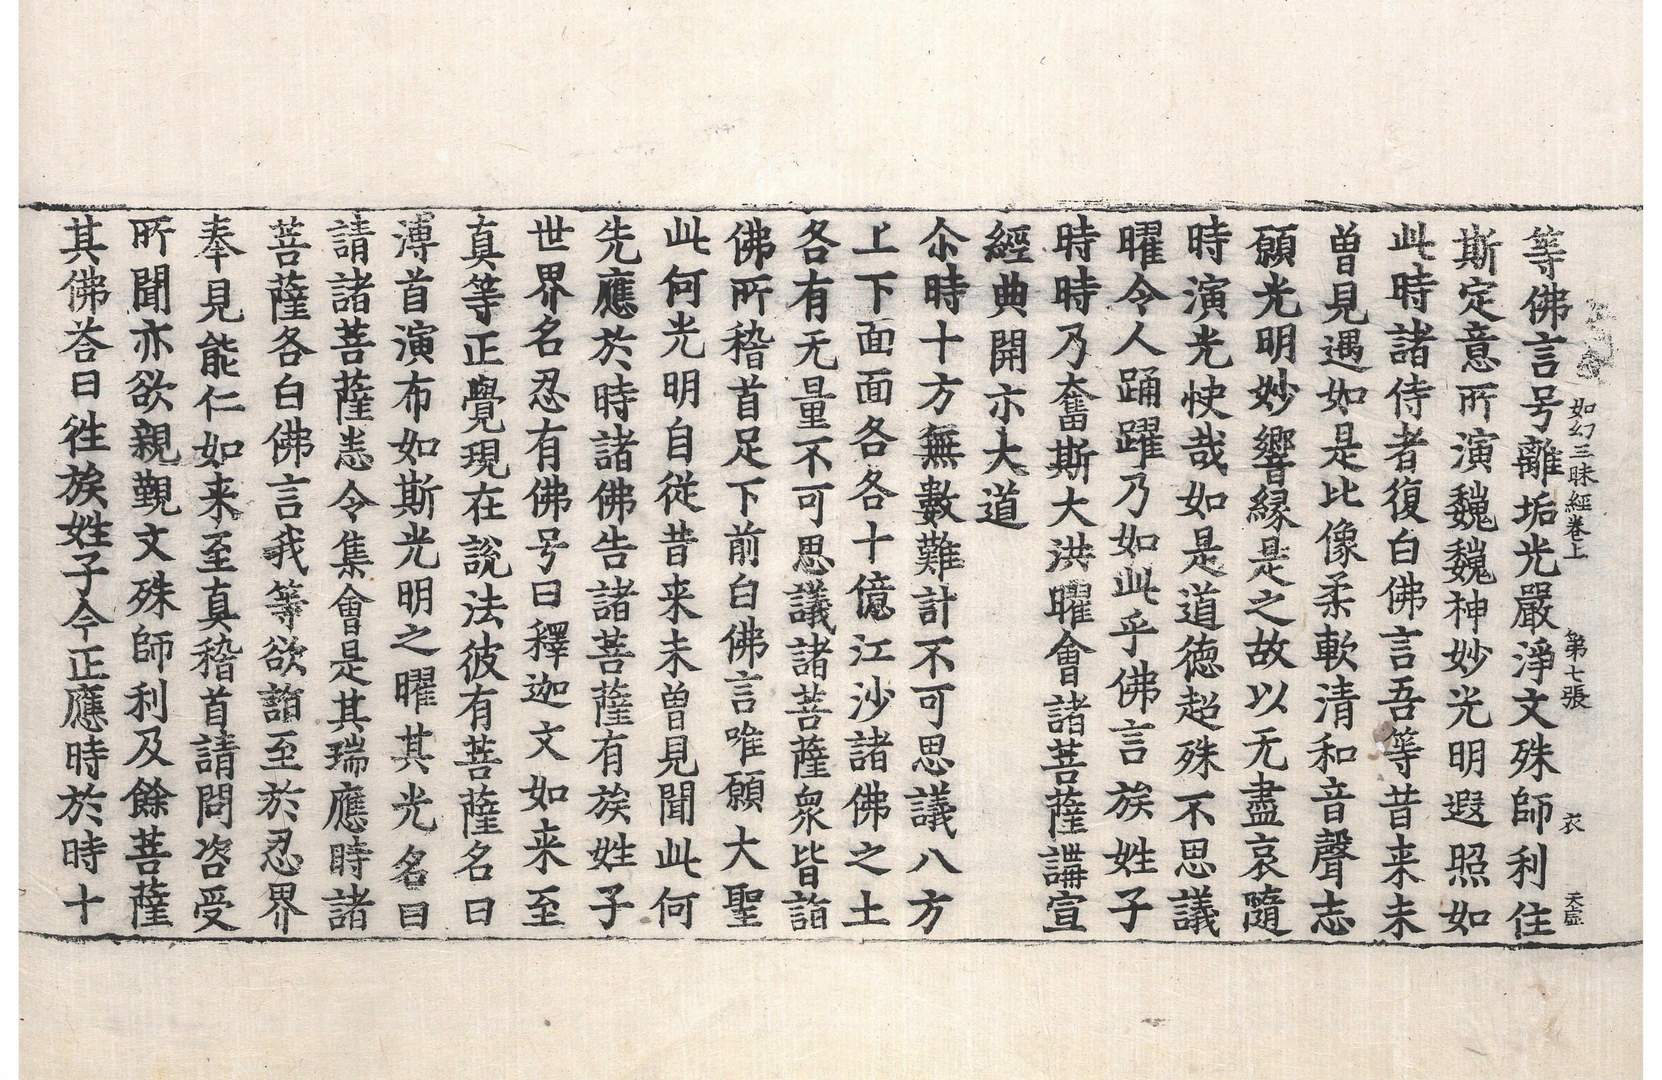 如幻三昧經卷上 第七張 衣 天
等佛言号離垢光嚴淨文殊師利住
斯定意所演巍巍神妙光明遐照如
此時諸侍者復白佛言吾等昔来未
曽見遇如是比像柔軟清和音聲志
願光明妙響縁是之故以无盡哀隨
時演光快哉如是道德超殊不思議
曜令人踊躍乃如此乎佛言族姓子
時時乃奮斯大洪曜會諸菩薩講宣
經典開示大道
尒時十方無數難計不可思議八方
上下面面各各十億江沙諸佛之土
各有无量不可思議諸菩薩衆皆詣
佛所稽首足下前白佛言唯願大聖
此何光明自從昔来未曽見聞此何
先應於時諸佛告諸菩薩有族姓子
世界名忍有佛号曰釋迦文如来至
真等正覺現在說法彼有菩薩名曰
溥首演布如斯光明之曜其光名曰
請諸菩薩悉令集會是其瑞應時諸
菩薩各白佛言我等欲詣至於忍界
奉見能仁如来至真稽首請問咨受
所聞亦欲親覲文殊師利及餘菩薩
其佛荅曰徃族姓子今正應時於時十